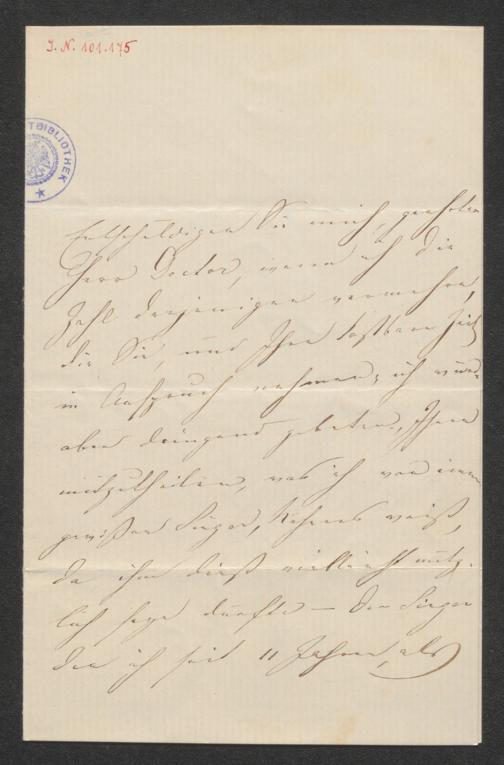 I. N. 101.175
TBIBLIOTHEK
Entschuldigen Sie mich, geehrter
Herr Doctor, wenn ich die
Zahl derjenigen vermehre,
die Sie, und Ihre kostbare Zeit
in Anspruch nehmen; ich wurde
aber dringend gebeten, Ihnen
mitzutheilen, was ich von einem
gewißen Sieger, weiß,
da ihm dieß vielleicht nütz-
lich seyn dürfte — Den Sieger
den ich seit 11 Jahren, als